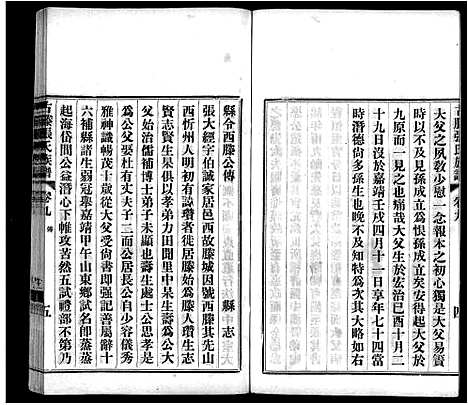 大父之夙教少慰一念報本之初心獨是大父易簀
時以不及見孫成立為恨孫成立矣安得起大父於
九原而一見之也痛哉大父生於宏治己酉十月二
十九日沒於嘉靖壬戌四月十一日享年七十四當
時諸伯尚多孫生也晚不及知特為次其大略如右
古滕張氏族譜 卷九 四
縣令西滕公傳 縣志
張大經字伯誠家居邑西故滕城因號西滕其先山
西忻州人明初有諱瓚者徙居滕人即瓚生
賢志賢生果俱以孝弟力田聞里中杲生壽為公大
父始治儒補博士弟子未顯也壽生處士公思孝是
為公父娶杜有丈夫子三而公居長公自少容儀秀
雅神識暢茂十六受大父尚書即强記善屬辭十
六補縣諸生弱冠舉嘉靖甲午山東鄉試名即蒸蒸
起海岱間公益潛心下帷攻苦然五試禮部不第乃
古滕張氏族譜 卷九 傳 五